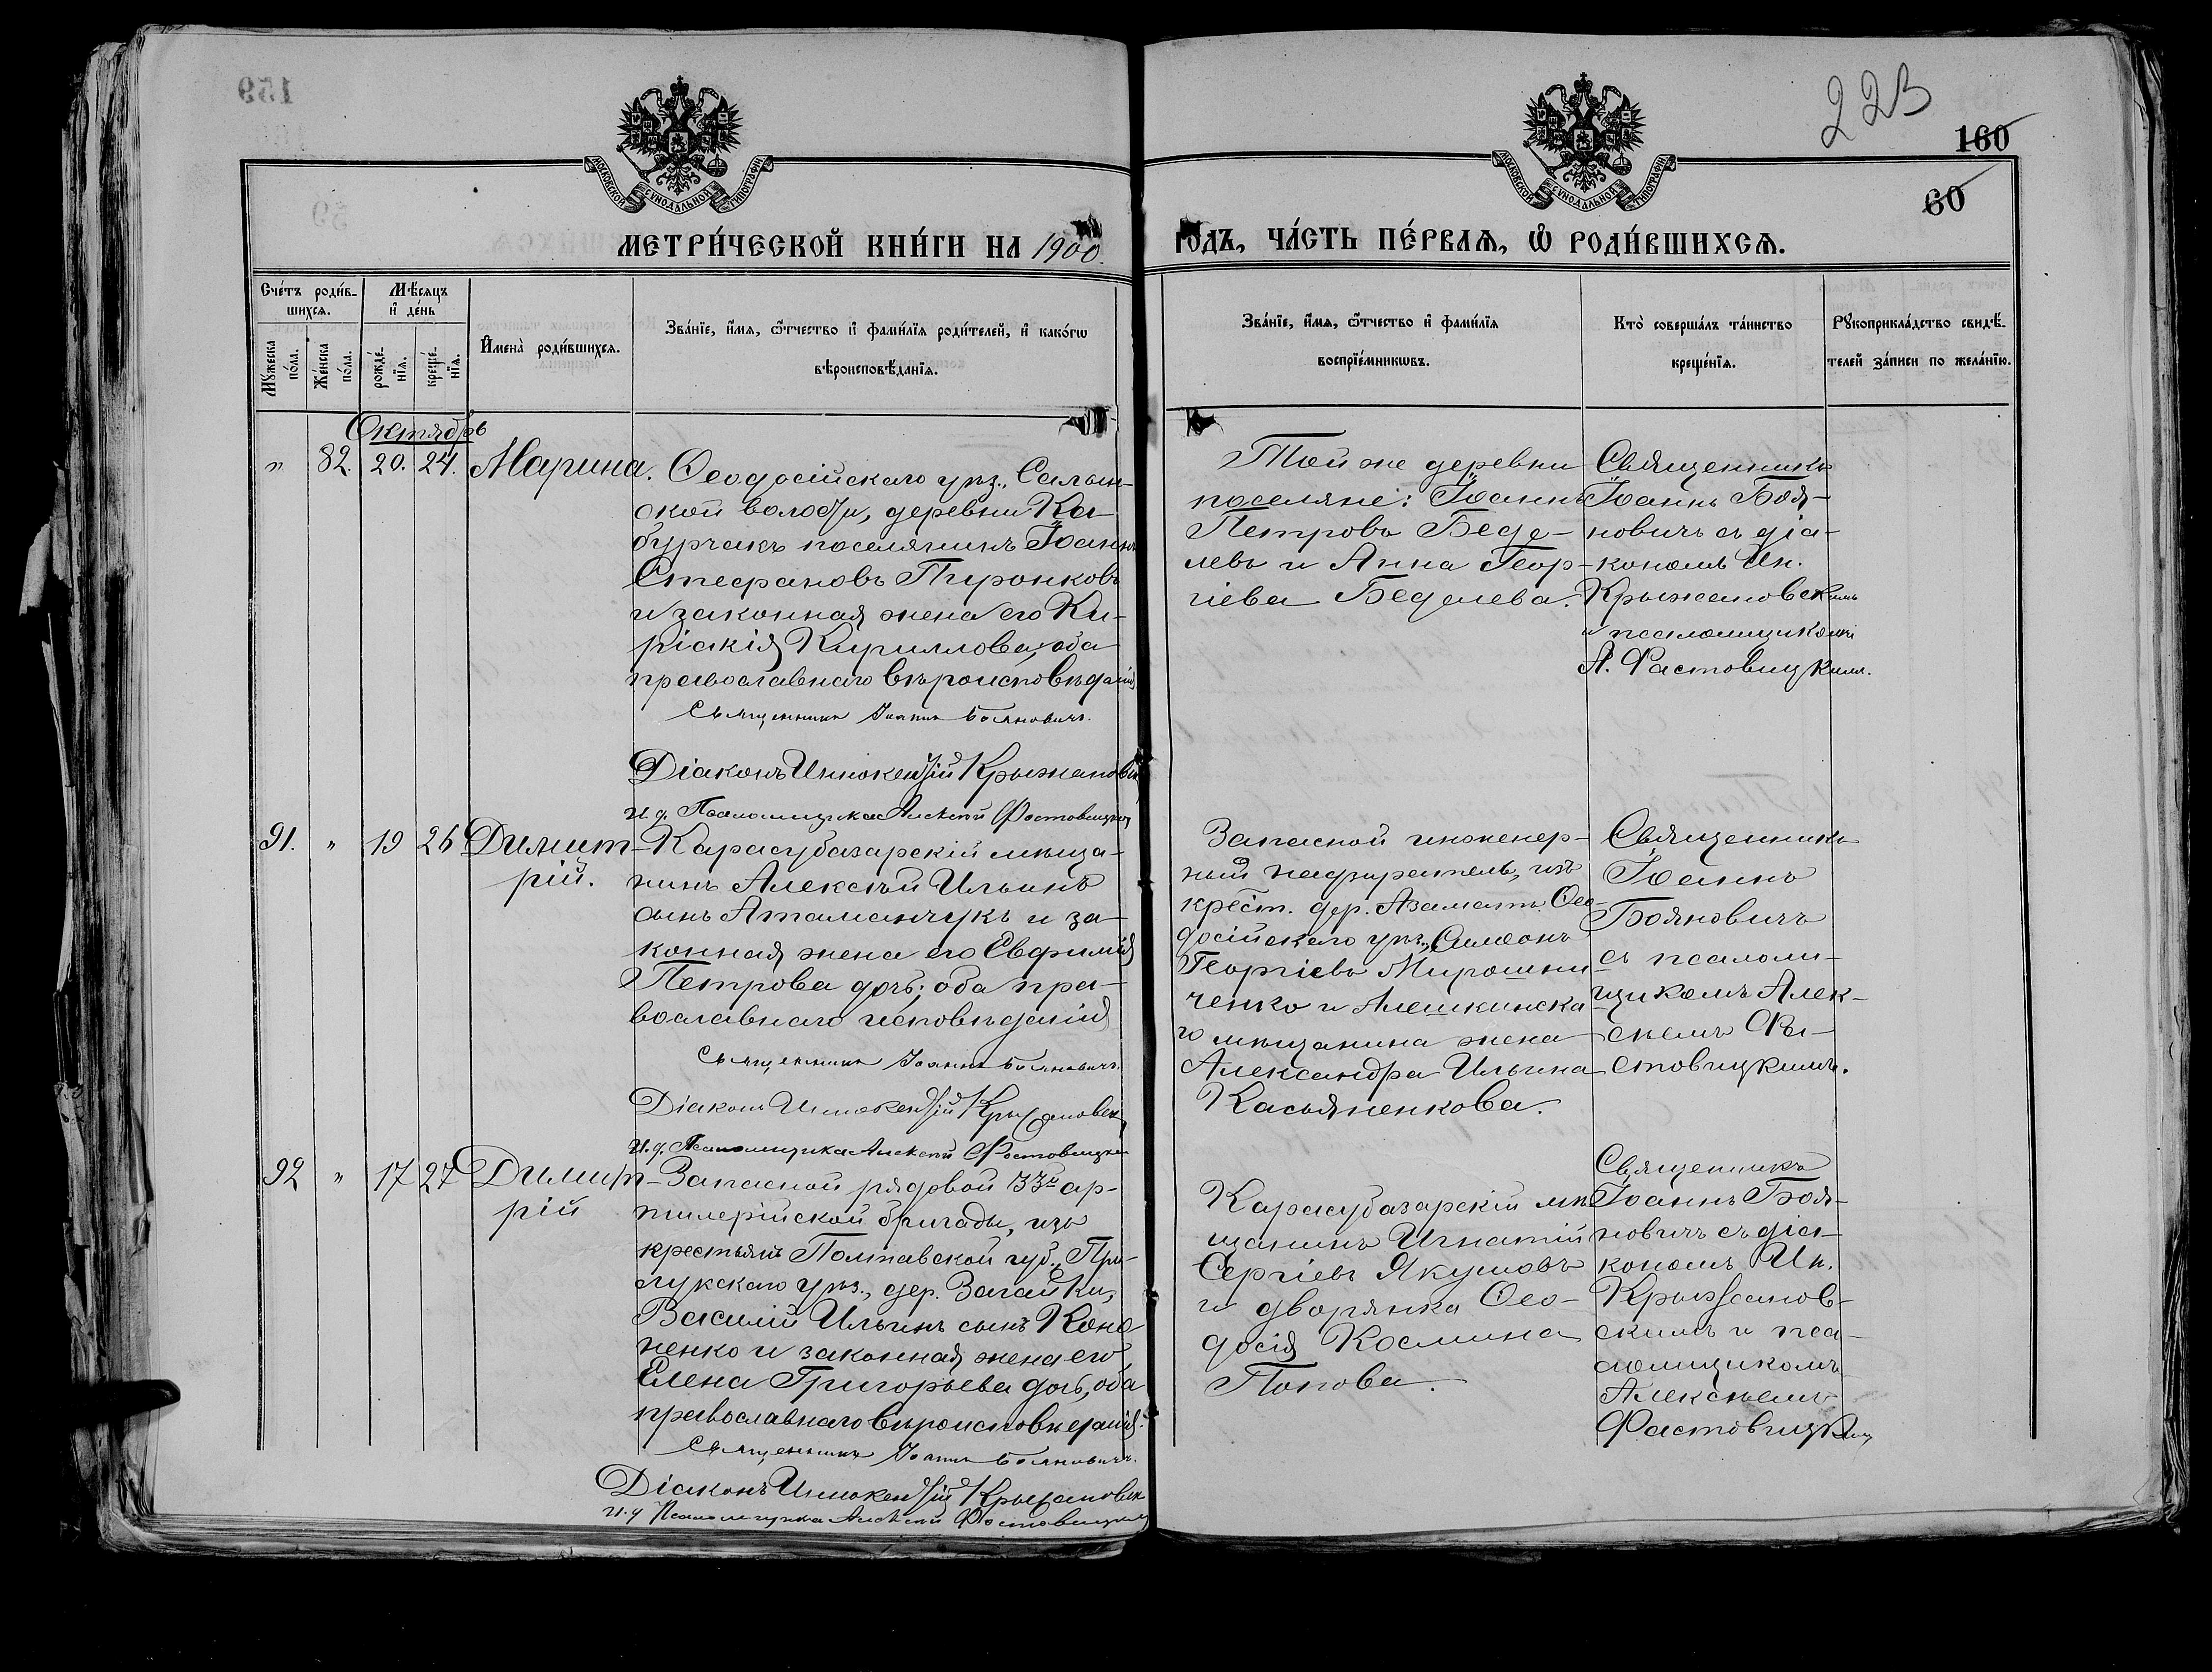 223
160
60
МОСКОВСКОЙ СУНОДАЛЬНОЙ ТИПОГРАФІИ
МОСКОВСКОЙ СУНОДАЛЬНОЙ ТИПОГРАФІИ
МЕТРИ́ЧЕСКОЙ КНИ́ГИ НА 1900.
ГОДЪ, ЧА́СТЬ ПЕ́РВАѦ, Ѡ҆ РОДИ́ВШИХСѦ.
Сче́тъ роди́в-
шихсѧ.
Мꙋ́жеска по́ла.
Же́нска по́ла.
Мѣ́сѧцъ
и҆ де́нь
рожде́-нїѧ.
креще́-нїѧ.
И҆мена̀ роди́вшихсѧ.
Зва́нїе, и҆́мѧ, ѻ҆́тчество и҆ фами́лїѧ роди́телей, и҆ како́гѡ
вѣроисповѣ́данїѧ.
Зва́нїе, и҆́мѧ, ѻ҆́тчество и҆ фами́лїѧ
воспрїе́мникѡвъ.
Кто̀ соверша́лъ та́инство
креще́нїѧ.
Рꙋкоприкла́дство свидѣ́-
телей за́писи по жела́нїю.
Октябрь
" 82. 20. 24. Марина.
Ѳеодосійскаго уѣз., Салын-
ской волости, деревни Ка-
бурчакъ поселянинъ Іоаннъ
Стефановъ Пиронковъ
и законная жена его Ки-
ріакія Кириллова, оба
православнаго вѣроисповѣданія
Священникъ Іоаннъ Бояновичъ.
Діаконъ Иннокентій Крыжановскі
И. д. Псаломщика Алексѣй Фастовицкій
Той же деревни
поселяне: Іоаннъ
Петровъ Беде-
левъ и Анна Геор-
гіева Беделева.
Священникъ
Іоаннъ Боя-
новичъ съ діа-
кономъ Ин.
Крыжановскимъ
и псаломщикомъ
А. Фастовицкимъ.
91. " 19 26 Димит-
рій.
Карасубазарскій мѣща-
нинъ Алексѣй Ильинъ
сынъ Атаманчукъ и за-
конная жена его Евфимія
Петрова дочь; оба пра-
вославнаго исповѣданія
Священникъ Іоаннъ Бояновичъ.
Діаконъ Иннокентій Крыжановск
И. д. Псаломщика Алексѣй Фастовицкій
Запасной инженер-
ный надзиратель, изъ
крест. дер. Азаматъ Ѳео-
досійскаго уѣз., Симеонъ
Георгіевъ Мирошни-
ченко и Алешкинска-
го мѣщанина жена
Александра Ильина
Касьяненкова.
Священникъ
Іоаннъ
Бояновичъ
съ псалом-
щикомъ Алек-
сѣемъ Фа-
стовицкимъ.
92 " 17 27 Димит-
рій
Запасной рядовой 33й ар-
тиллерійской бригады, изъ
крестьянъ Полтавской губ., При-
лукскаго уѣз., дер. Загайки,
Василій Ильинъ сынъ Коно-
ненко и законная жена его
Елена Григорьева дочь, оба
православнаго вѣроисповѣданія.
Священникъ Іоаннъ Бояновичъ.
Діаконъ Иннокентій Крыжановск
И. д Псаломщика Алексѣй Фастовицкій
Карасубазарскій мѣ-
щанинъ Игнатій
Сергіевъ Якушовъ
и дворянка Ѳео-
досія Космина
Попова.
Священникъ
Іоаннъ Боя-
новичъ съ діа-
кономъ Ин.
Крыжанов-
скимъ и пса-
ломщикомъ
Алексѣемъ
Фастовицким